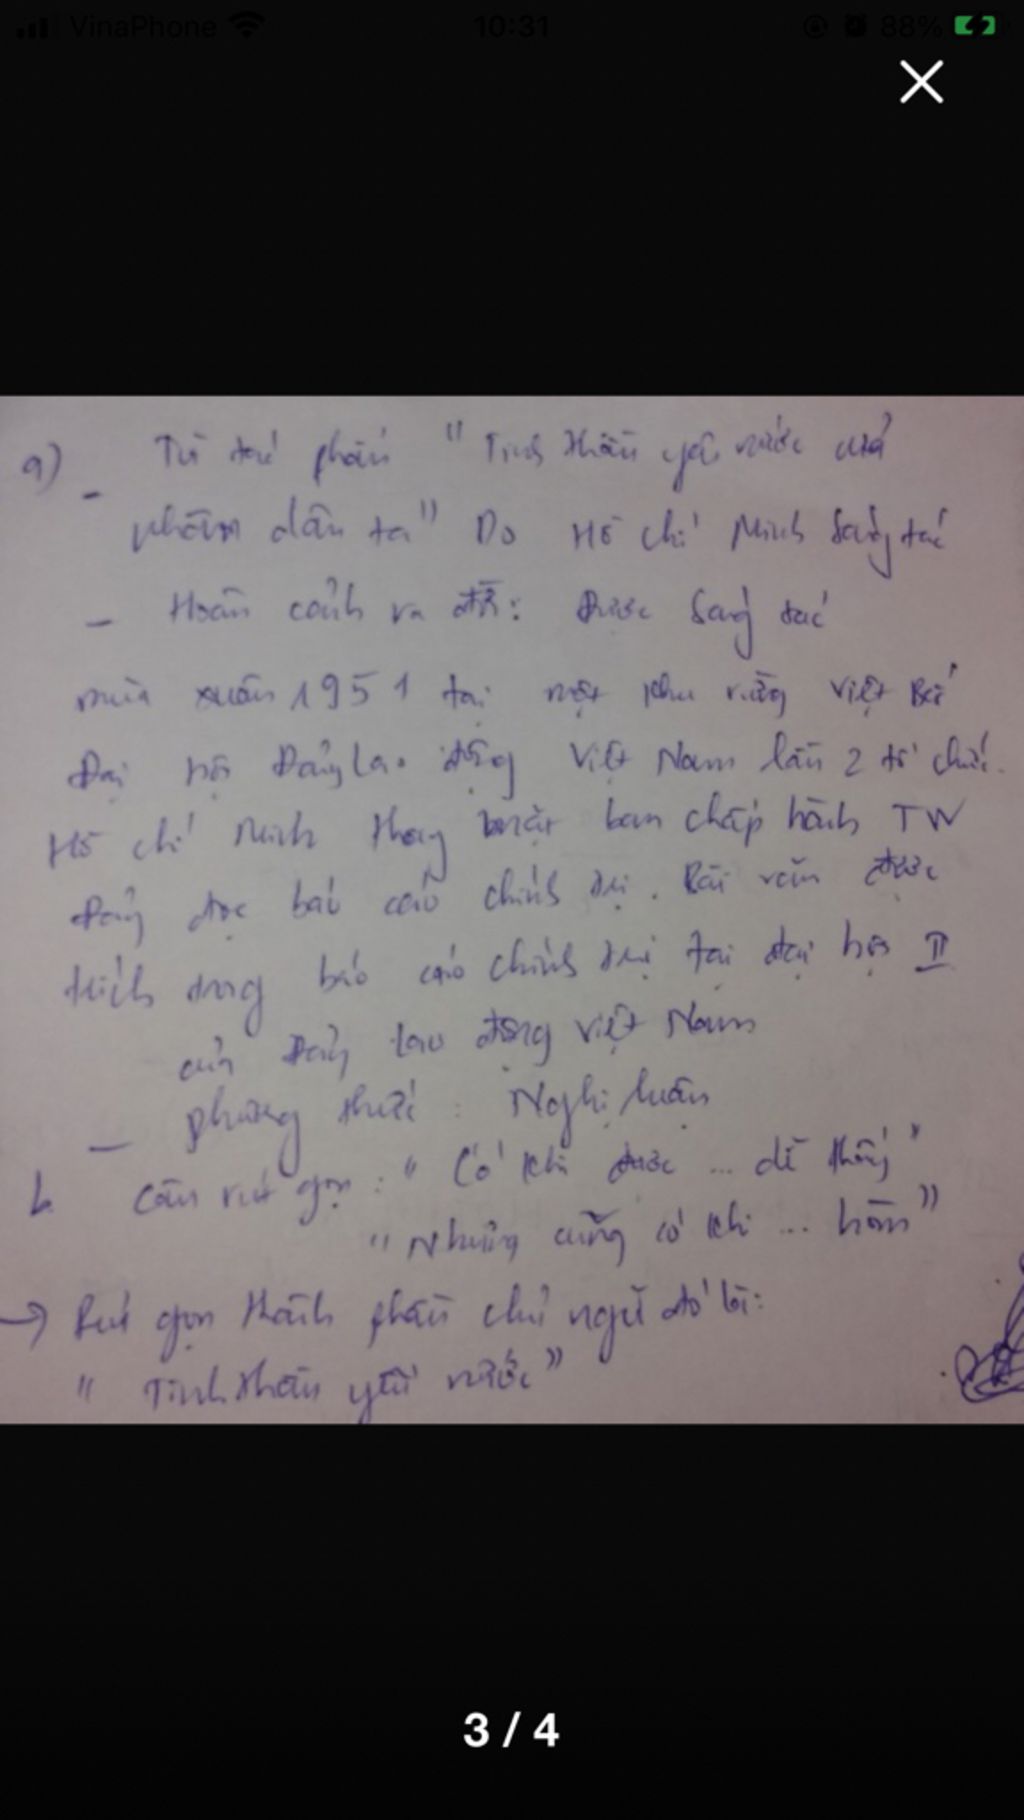 VinaPhone 10:31 88%
a) Từ tác phẩm "Tinh thần yêu nước của
- nhân dân ta" Do Hồ Chí Minh sáng tác
- Hoàn cảnh ra đời: Được sáng tác
mùa xuân 1951 tại một khu rừng Việt Bắc
Đại hội Đảng lao động Việt Nam lần 2 tổ chức.
Hồ Chí Minh thay mặt ban chấp hành TW
Đảng đọc báo cáo chính trị. Bài văn được
trích trong báo cáo chính trị tại đại hội II
của Đảng lao động Việt Nam
- phương thức: Nghị luận
b. Câu rút gọn: "Có khi được ... dễ thấy"
"Nhưng cũng có khi ... hòm"
→ Rút gọn thành phần chủ ngữ đó là:
"Tinh thần yêu nước"
3 / 4